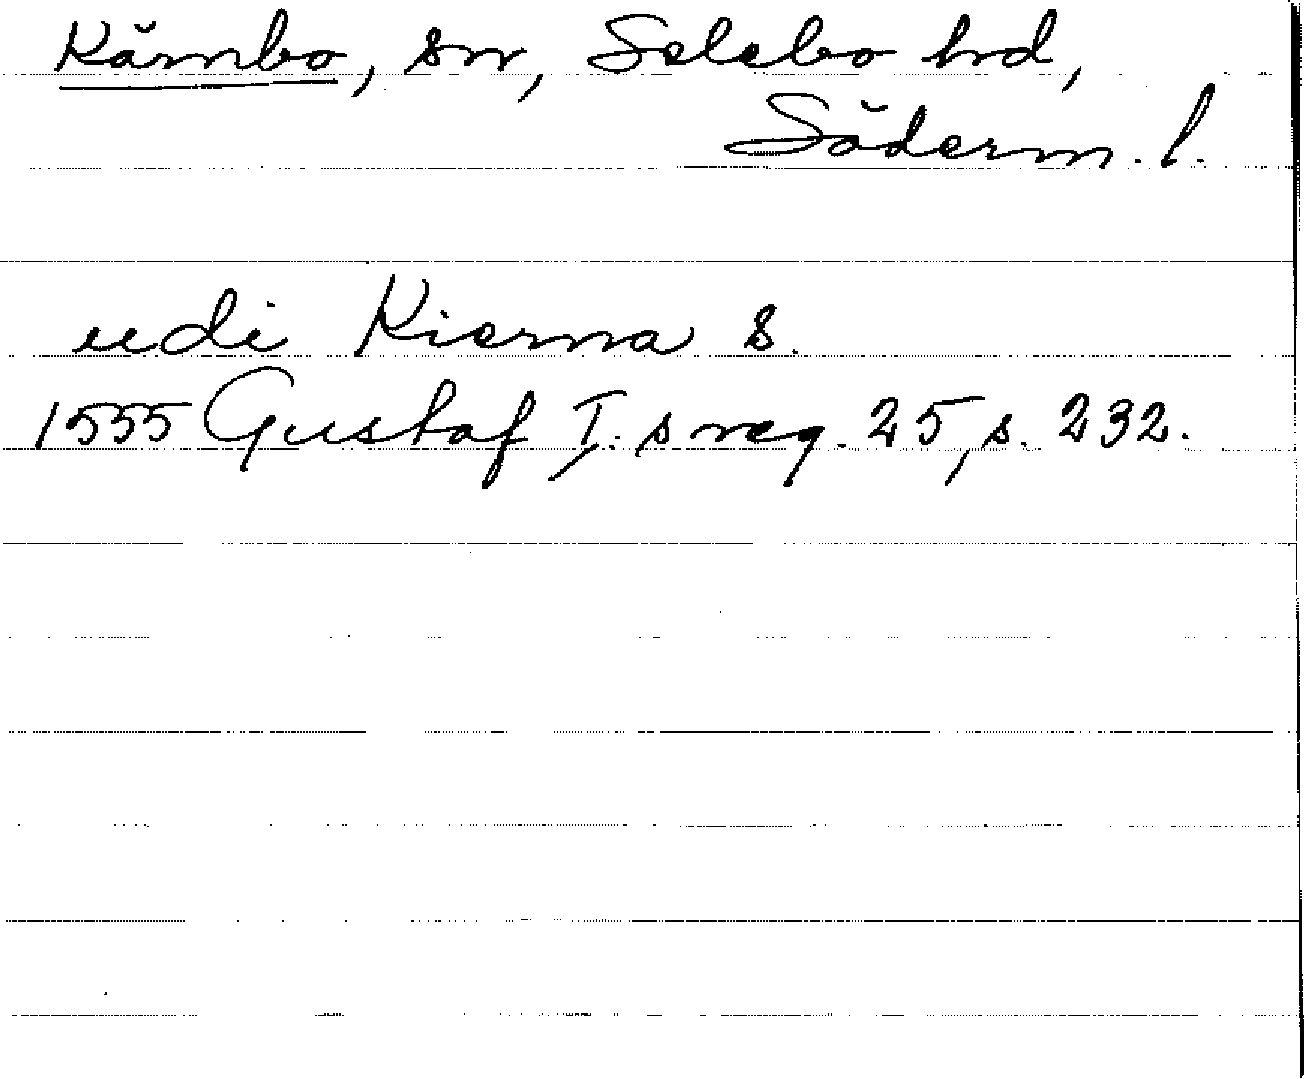 Kärnbo, sn, Selebo hd,
Söderm. l.
udi Kierna s.
1555 Gustaf I:s reg. 25, s. 232.